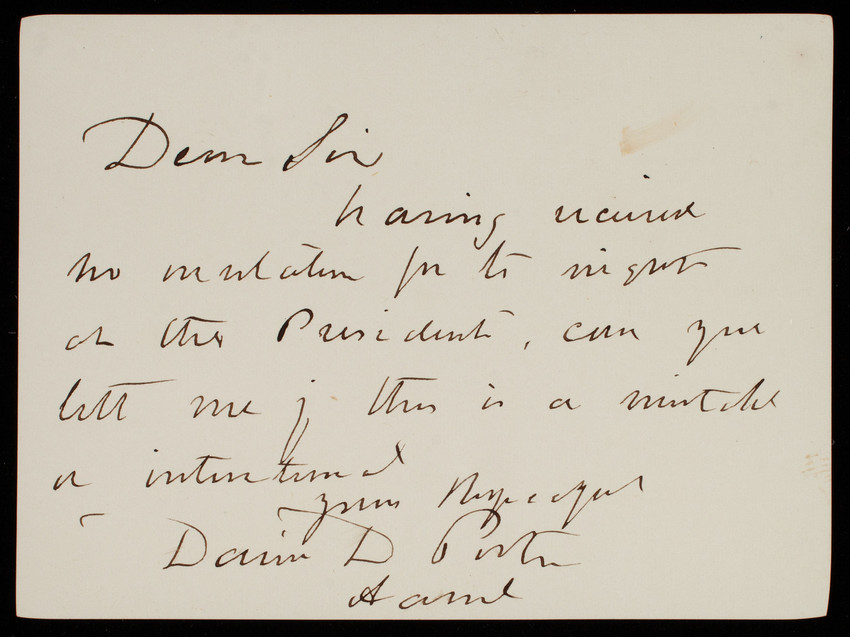 Dear Sir
having received
no invitation for to night
at the President, can you
tell me if this is a mistake
or intentional
yours Respectful
David D Porter
Adml